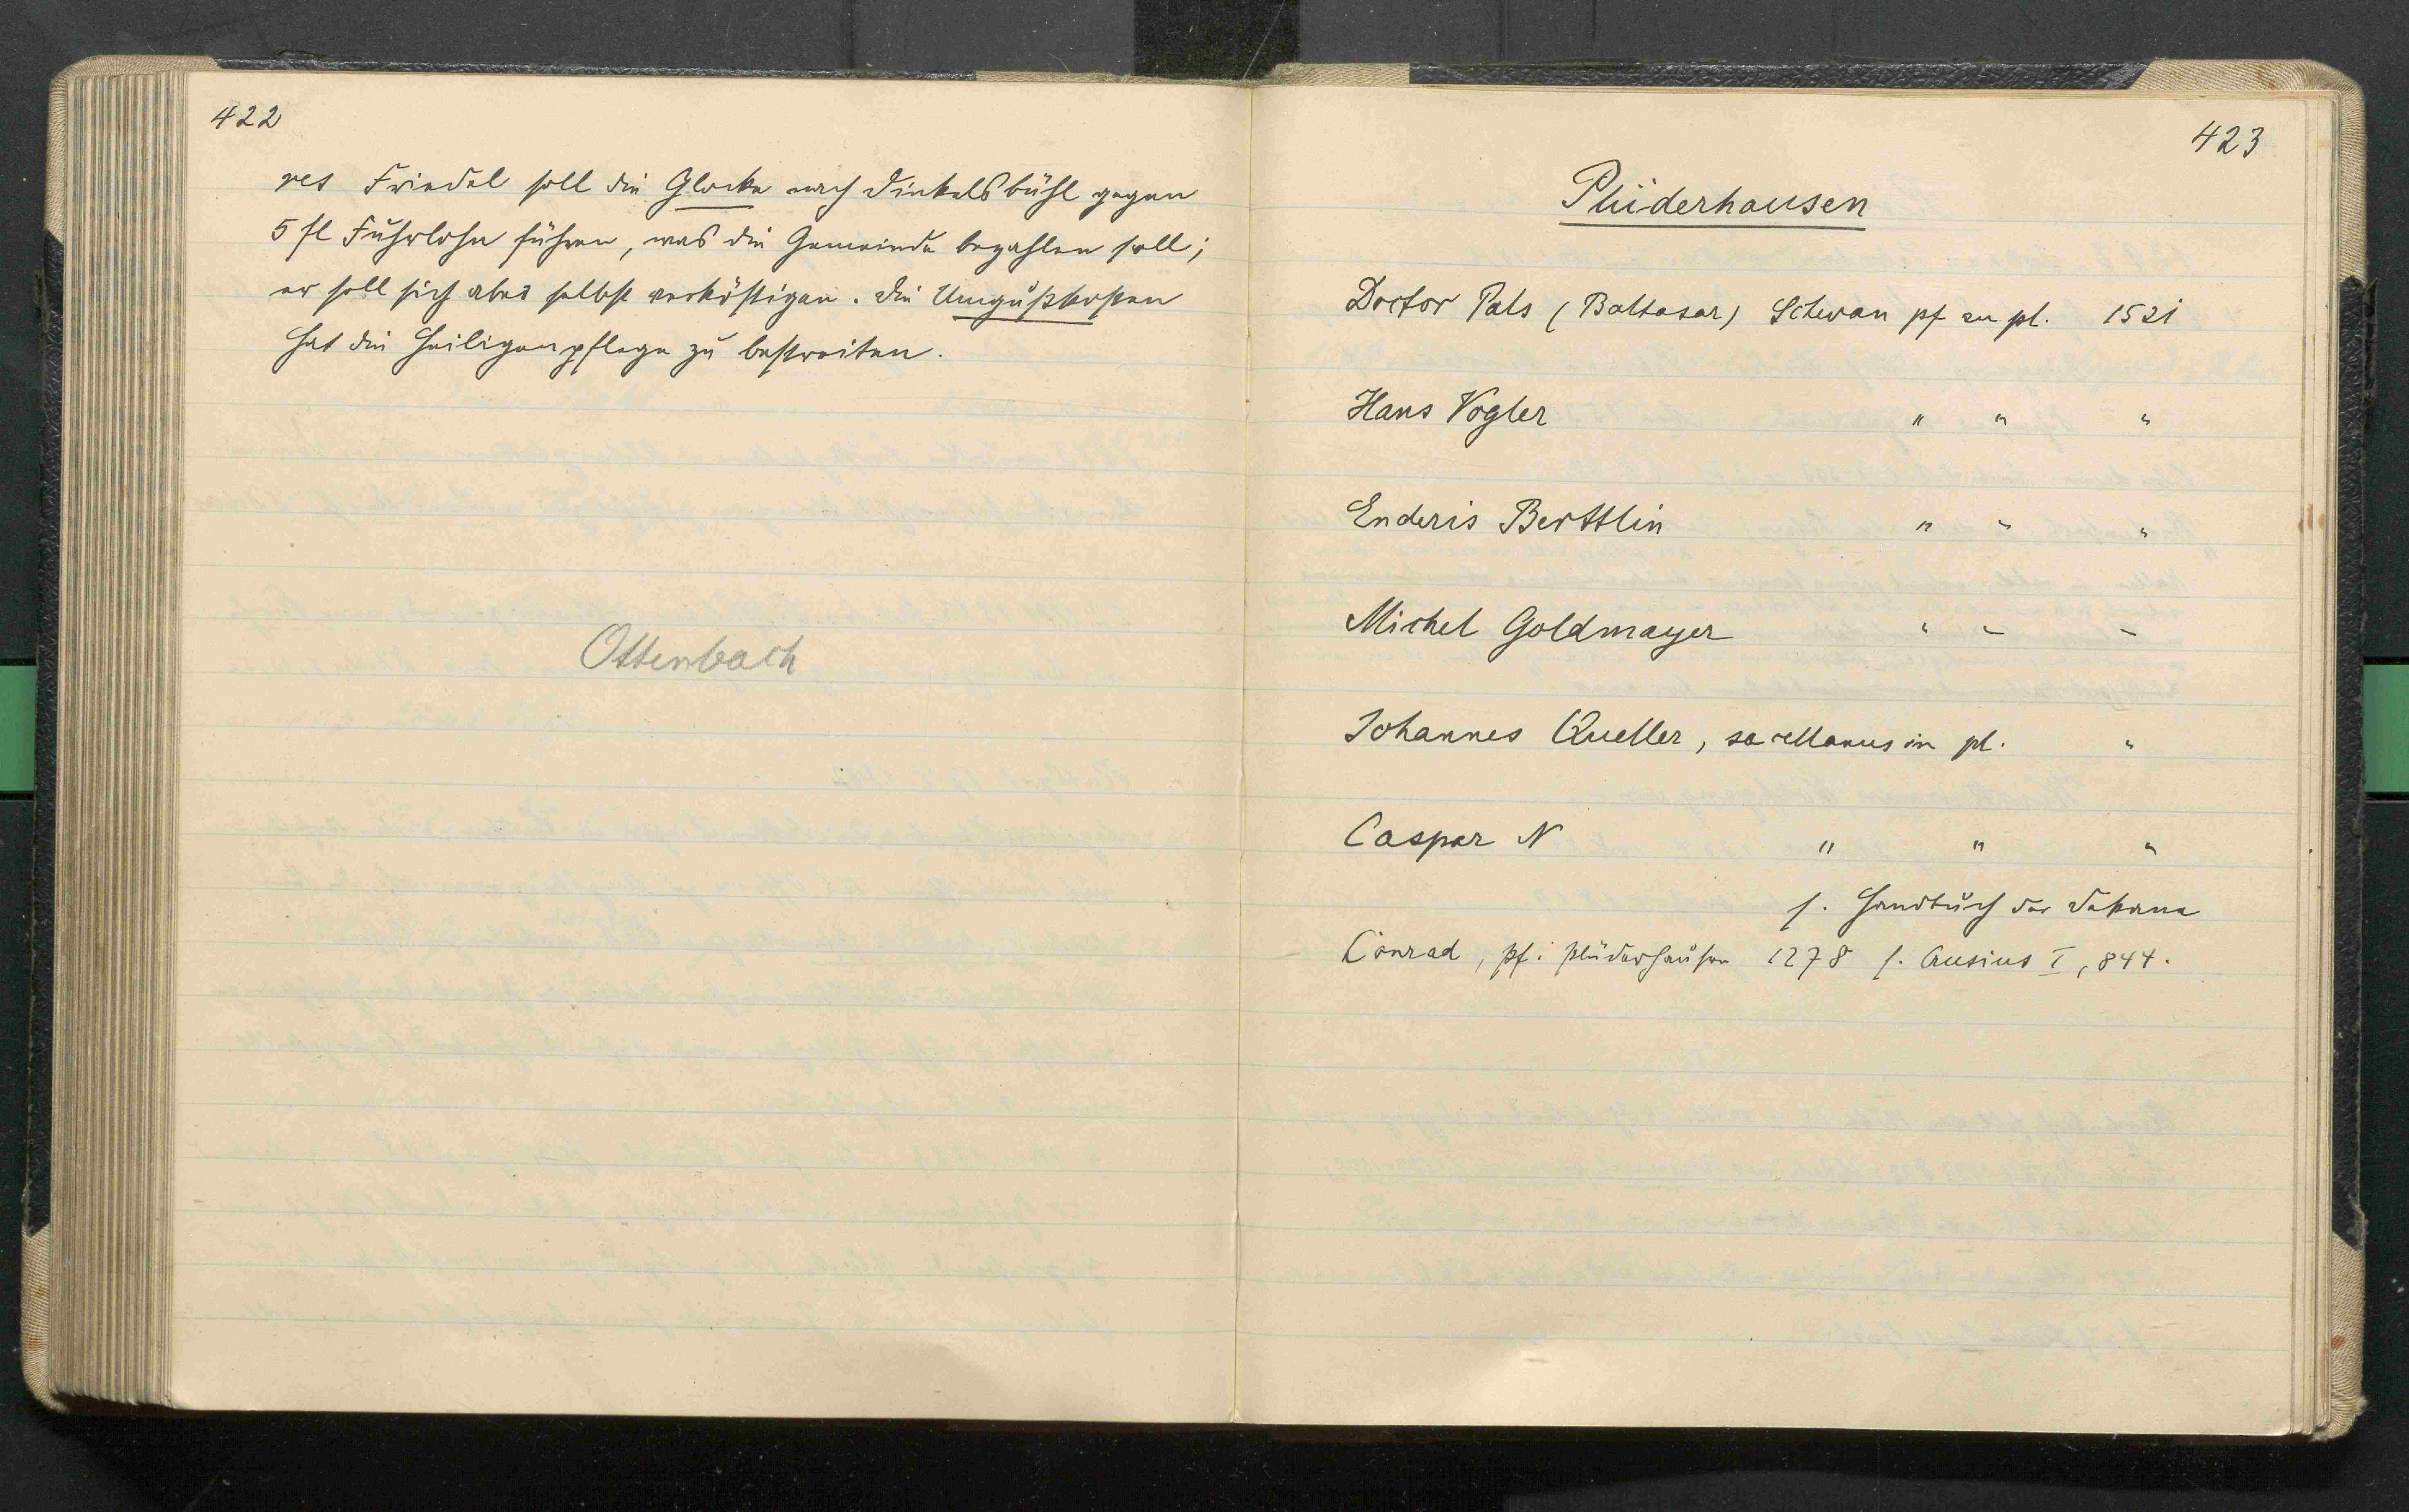 422
res Friedel soll die Glocke nach Dinkelsbühl gegen
5 fl Fuhrlohn führen, was die Gemeinde bezahlen soll;
er soll sich aber selbst verköstigen. Die Umgußkosten
hat die Heiligenpflege zu bestreiten.
Ottenbach
423
Plüderhausen
Doctor Pals (Baltasar) Schwan pf zu pl. 1521
Hans Vogler " " "
Enderis Berttlin " " "
Michel Goldmayer " " "
Johannes Queller, sacellanus in pl. "
Caspar N " " "
s. Handbuch der Dekane
Conrad, pf. i Plüderhausen 1278 s. Crusius I, 844.